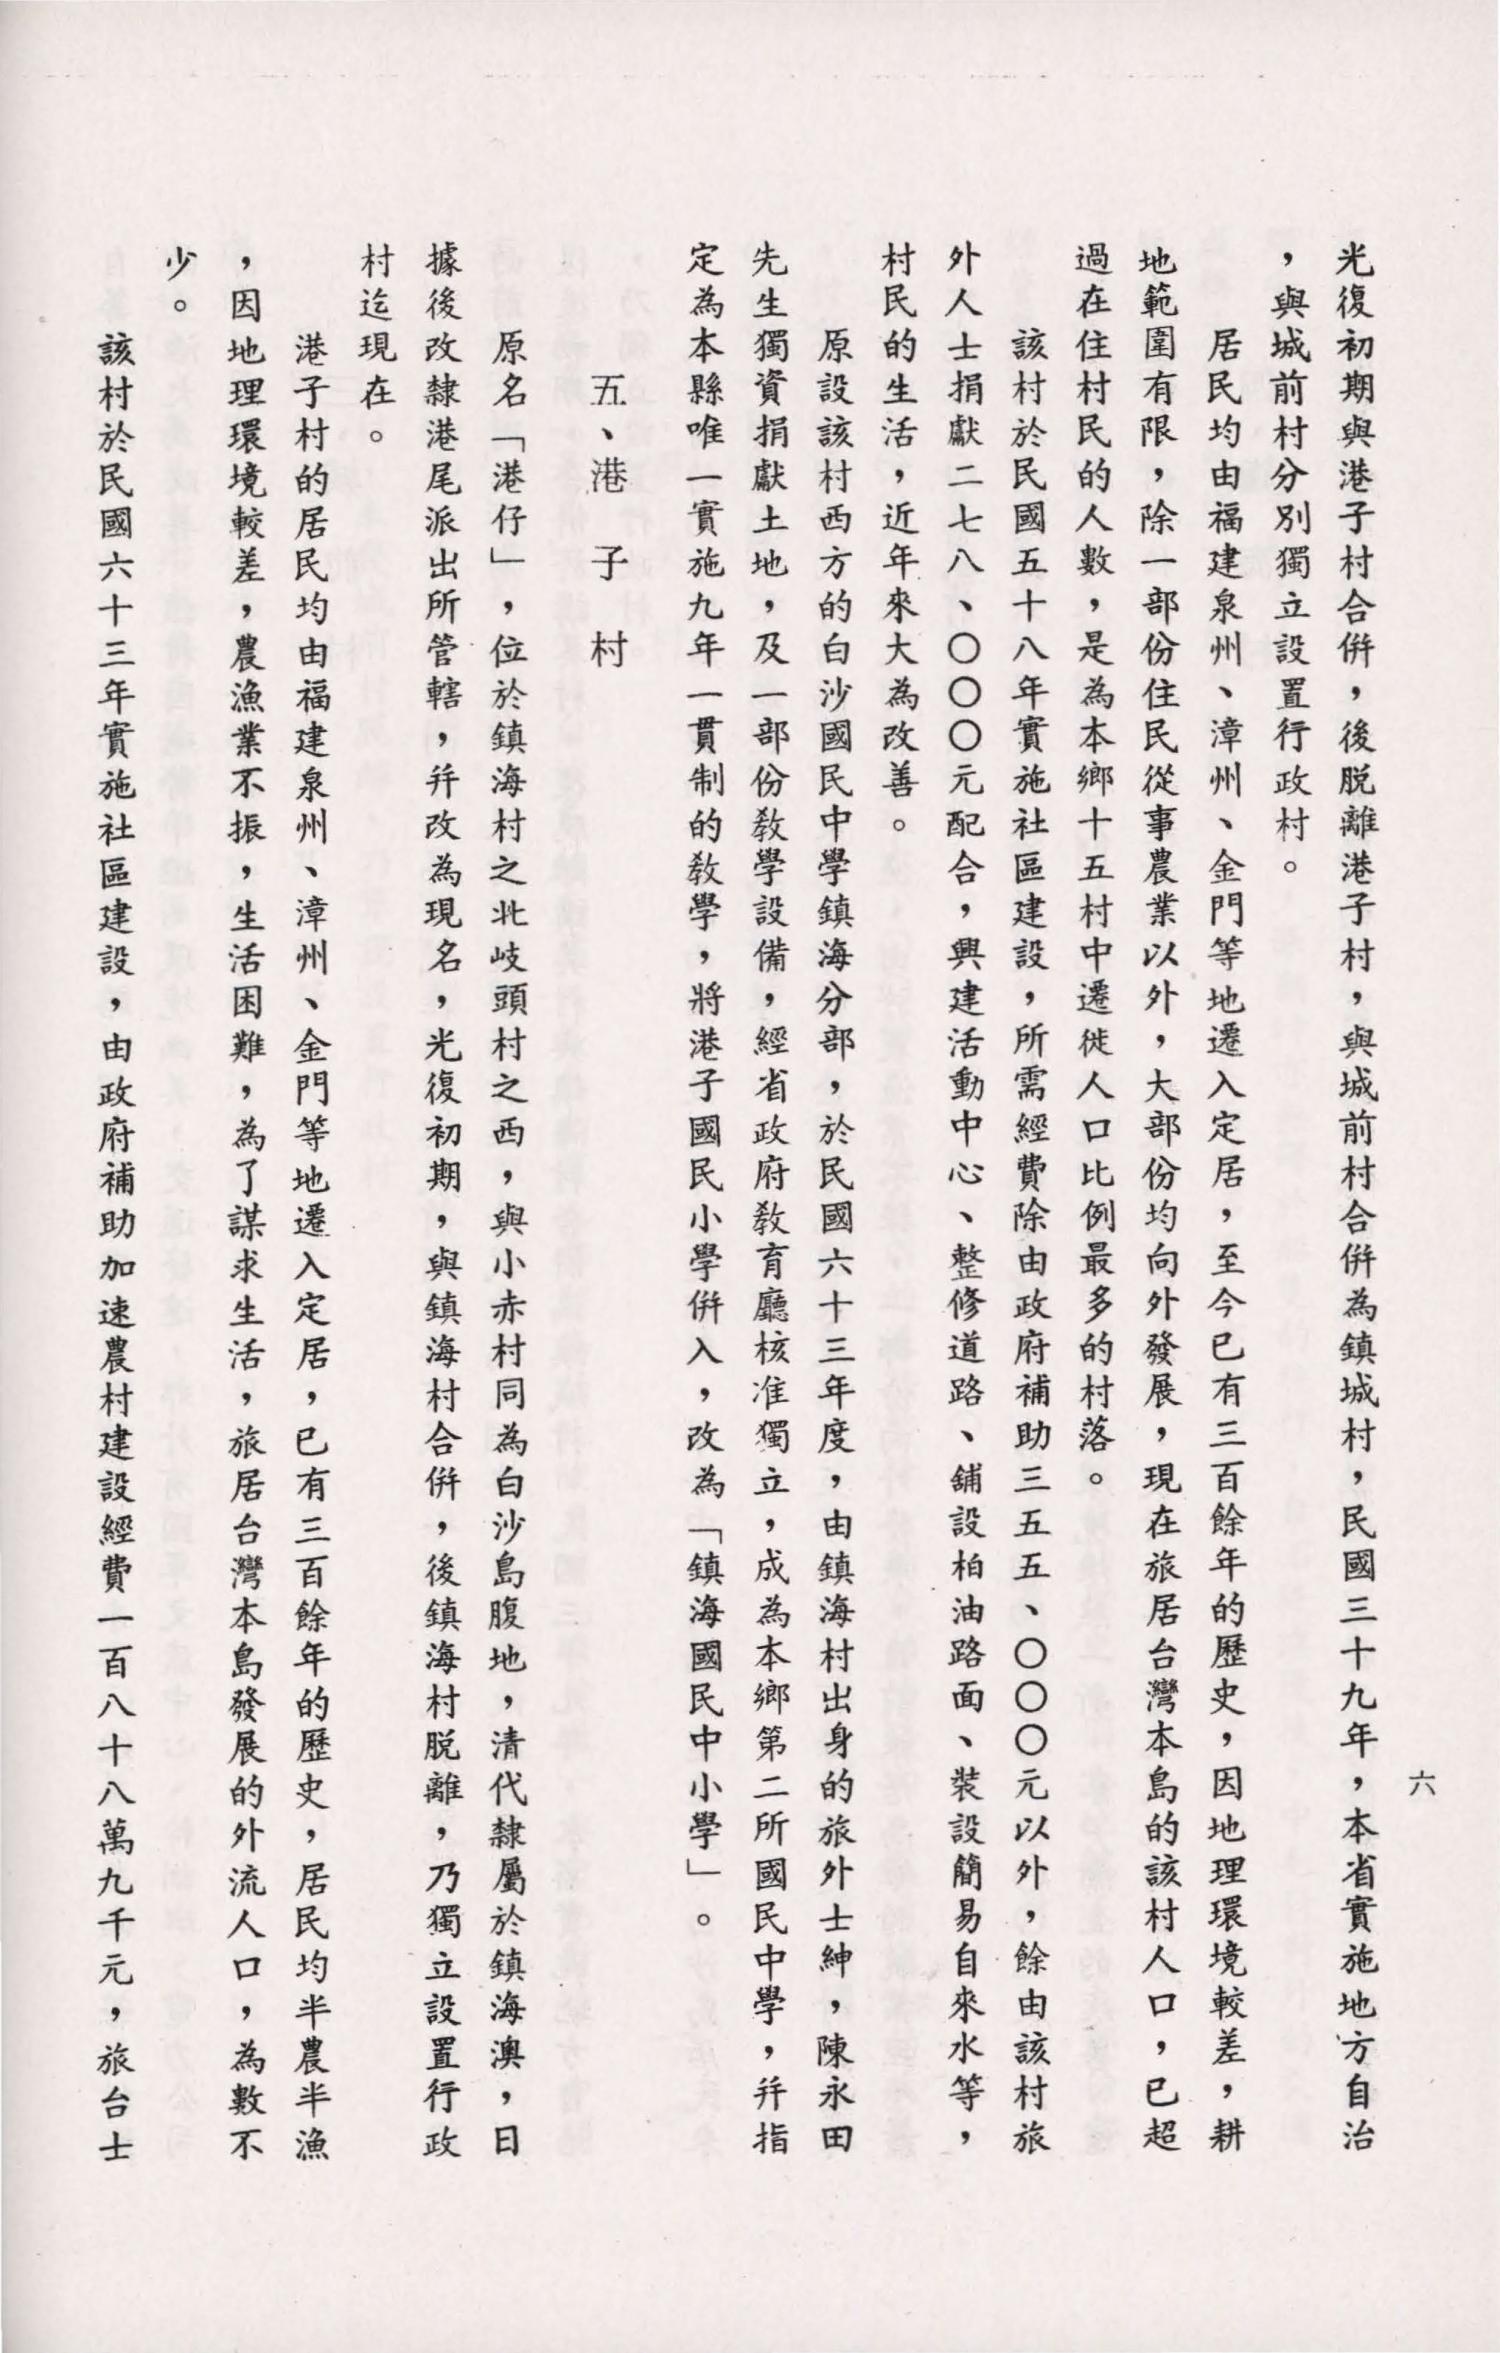 六
光復初期與港子村合併，後脫離港子村，與城前村合併為鎮城村，民國三十九年，本省實施地方自治
，與城前村分別獨立設置行政村。
居民均由福建泉州、漳州、金門等地遷入定居，至今已有三百餘年的歷史，因地理環境較差，耕
地範圍有限，除一部份住民從事農業以外，大部份均向外發展，現在旅居台灣本島的該村人口，已超
過在住村民的人數，是為本鄉十五村中遷徙人口比例最多的村落。
該村於民國五十八年實施社區建設，所需經費除由政府補助三五五、〇〇〇元以外，餘由該村旅
外人士捐獻二七八、〇〇〇元配合，興建活動中心、整修道路、舖設柏油路面、裝設簡易自來水等，
村民的生活，近年來大為改善。
原設該村西方的白沙國民中學鎮海分部，於民國六十三年度，由鎮海村出身的旅外士紳，陳永田
先生獨資捐獻土地，及一部份教學設備，經省政府教育廳核准獨立，成為本鄉第二所國民中學，并指
定為本縣唯一實施九年一貫制的教學，將港子國民小學併入，改為「鎮海國民中小學」。
五、港子村
原名「港仔」，位於鎮海村之北岐頭村之西，與小赤村同為白沙島腹地，清代隸屬於鎮海澳，日
據後改隸港尾派出所管轄，并改為現名，光復初期，與鎮海村合併，後鎮海村脫離，乃獨立設置行政
村迄現在。
港子村的居民均由福建泉州、漳州、金門等地遷入定居，已有三百餘年的歷史，居民均半農半漁
，因地理環境較差，農漁業不振，生活困難，為了謀求生活，旅居台灣本島發展的外流人口，為數不
少。
該村於民國六十三年實施社區建設，由政府補助加速農村建設經費一百八十八萬九千元，旅台士